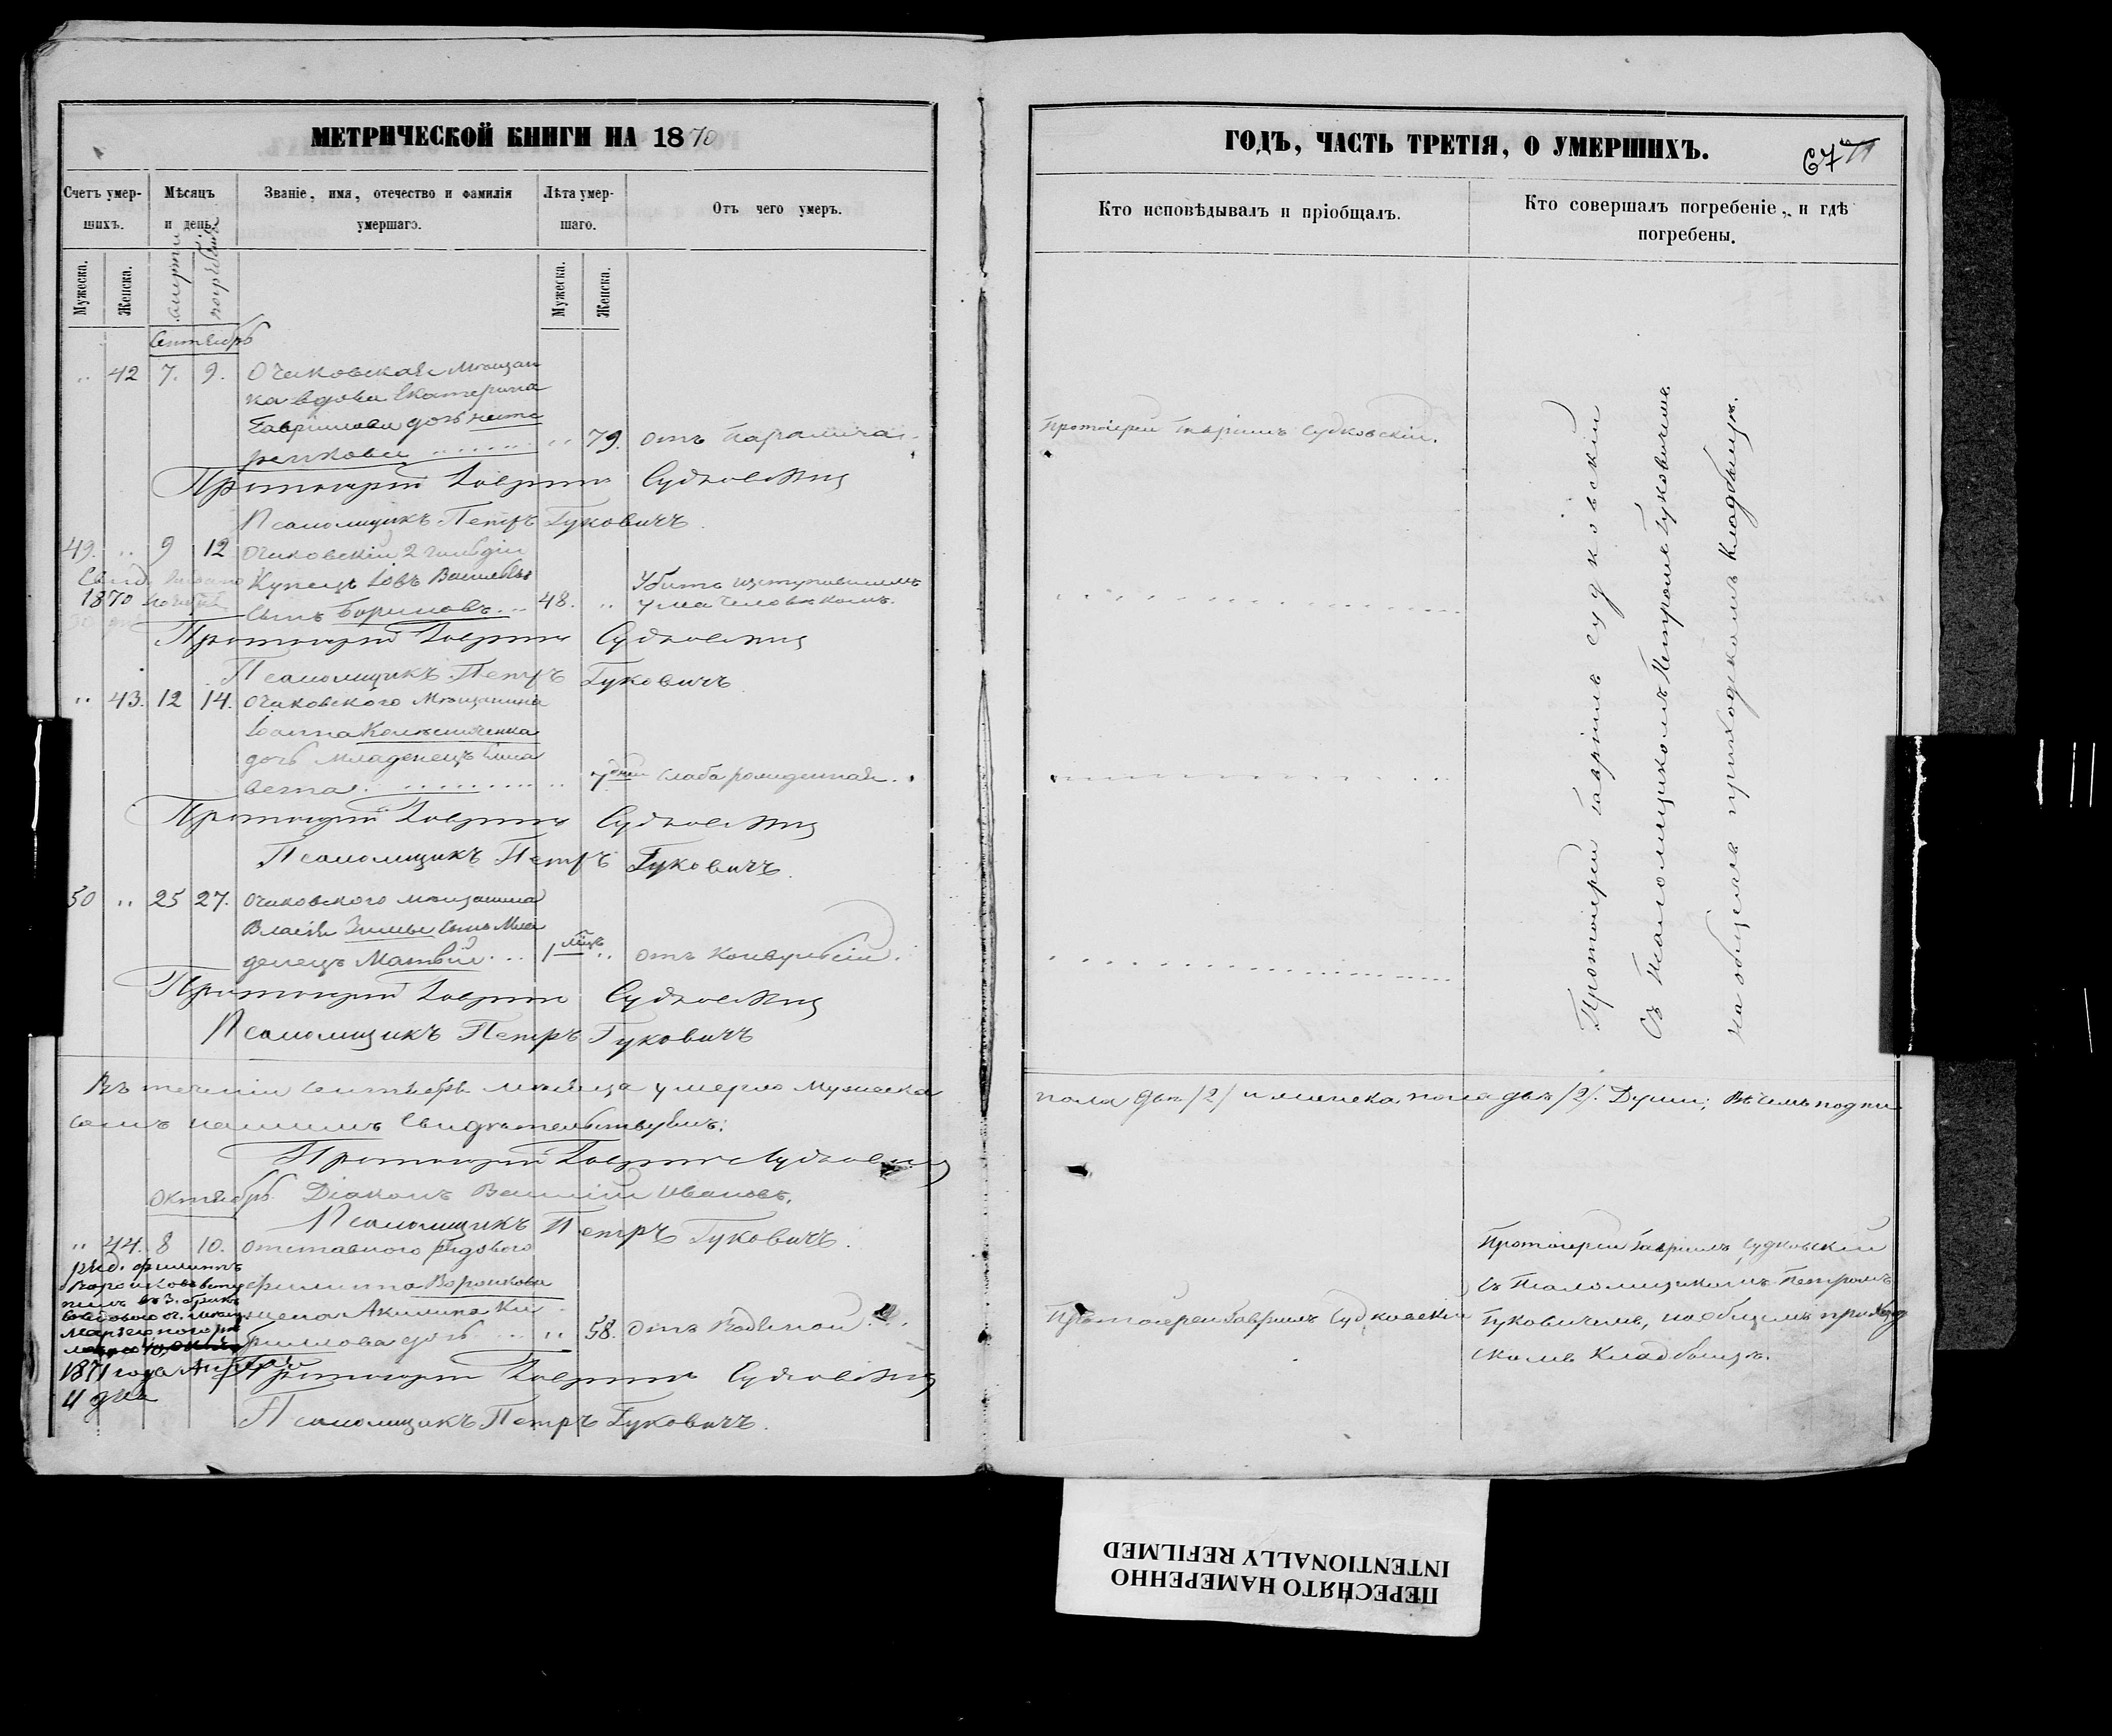 МЕТРИЧЕСКОЙ КНИГИ НА 1870
Счетъ умер-
шихъ.
Мѣсяцъ
и день.
Званіе, имя, отечество и фамилія
умершаго.
Лѣта умер-
шаго.
Отъ чего умеръ.
Мужеска.
Женска.
смерти
погребенія
Мужеска.
Женска.
Сентябрь
42 7. 9. Очаковская Мѣщан
ка вдова Екатерина
Гавриилова дочь
79. отъ Паралича.
Протоіерей Гавріилъ Судковскій
Псаломщикъ Петръ Гуковичъ.
49. 9 12 Очаковскій 2 гильдіи
Купецъ Іовъ Васильевъ
сынъ Бориновъ 48. Убитъ изступившимъ
ума человѣкомъ.
1870
Протоіерей Гавріилъ Судковскій
Псаломщикъ Петръ Гуковичъ
43. 12 14. Очаковского Мѣщанина
Іоанна
дочь младенецъ Елиса
вета 7 дней слаба рожденная.
Протоіерей Гавріилъ Судковскій
Псаломщикъ Петръ Гуковичъ.
50 25 27. Очаковского мѣщанина
Власія Зимы сынъ Мла
денецъ Матвѣй 1 мѣсц. отъ Конвульсіи.
Протоіерей Гавріилъ Судковскій
Псаломщикъ Петръ Гуковичъ
Въ теченіи Сентябрѣ мѣсяца умерло Мужеска
семъ нашимъ Свидѣтельствуемъ:
Протоіерей Гавріилъ Судковскій
Октябрь Діаконъ Василій Ивановъ.
Псаломщикъ Петръ Гуковичъ.
44. 8 10. отставного рядового
Филиппа Воронкова
жена Акилина Ки
риллова дочь 58. Отъ Водяной.
ряд. Филиппъ
1871 года Апрѣля
11 дня
Протоіерей Гавріилъ Судковскій
Псаломщикъ Петръ Гуковичъ.
ГОДЪ, ЧАСТЬ ТРЕТІЯ, О УМЕРШИХЪ.
67
Кто исповѣдывалъ и пріобщалъ.
Кто совершалъ погребеніе, и гдѣ
погребены.
Протоіерей Гавріилъ Судковскій.
Протоіерей Гавріилъ Судковскій
Съ Псаломщикомъ Петромъ Гуковичемъ
на общемъ приходскомъ Кладбищѣ.
пола двѣ /2/ и женска пола двѣ /2/. Души; Въ чемъ подпи
Протоіерей Гавріилъ Судковскій
Протоіерей Гавріилъ Судковскій
съ Псаломщикомъ Петромъ
Гуковичемъ, на общемъ приход
скомъ Кладбищѣ.
ПЕРЕСНЯТО НАМЕРЕННО
INTENTIONALLY REFILMED